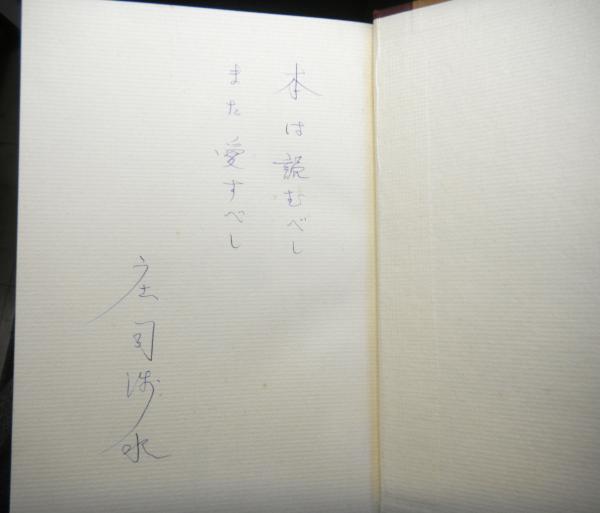 本は読むべし
また愛すべし
庄司浅水